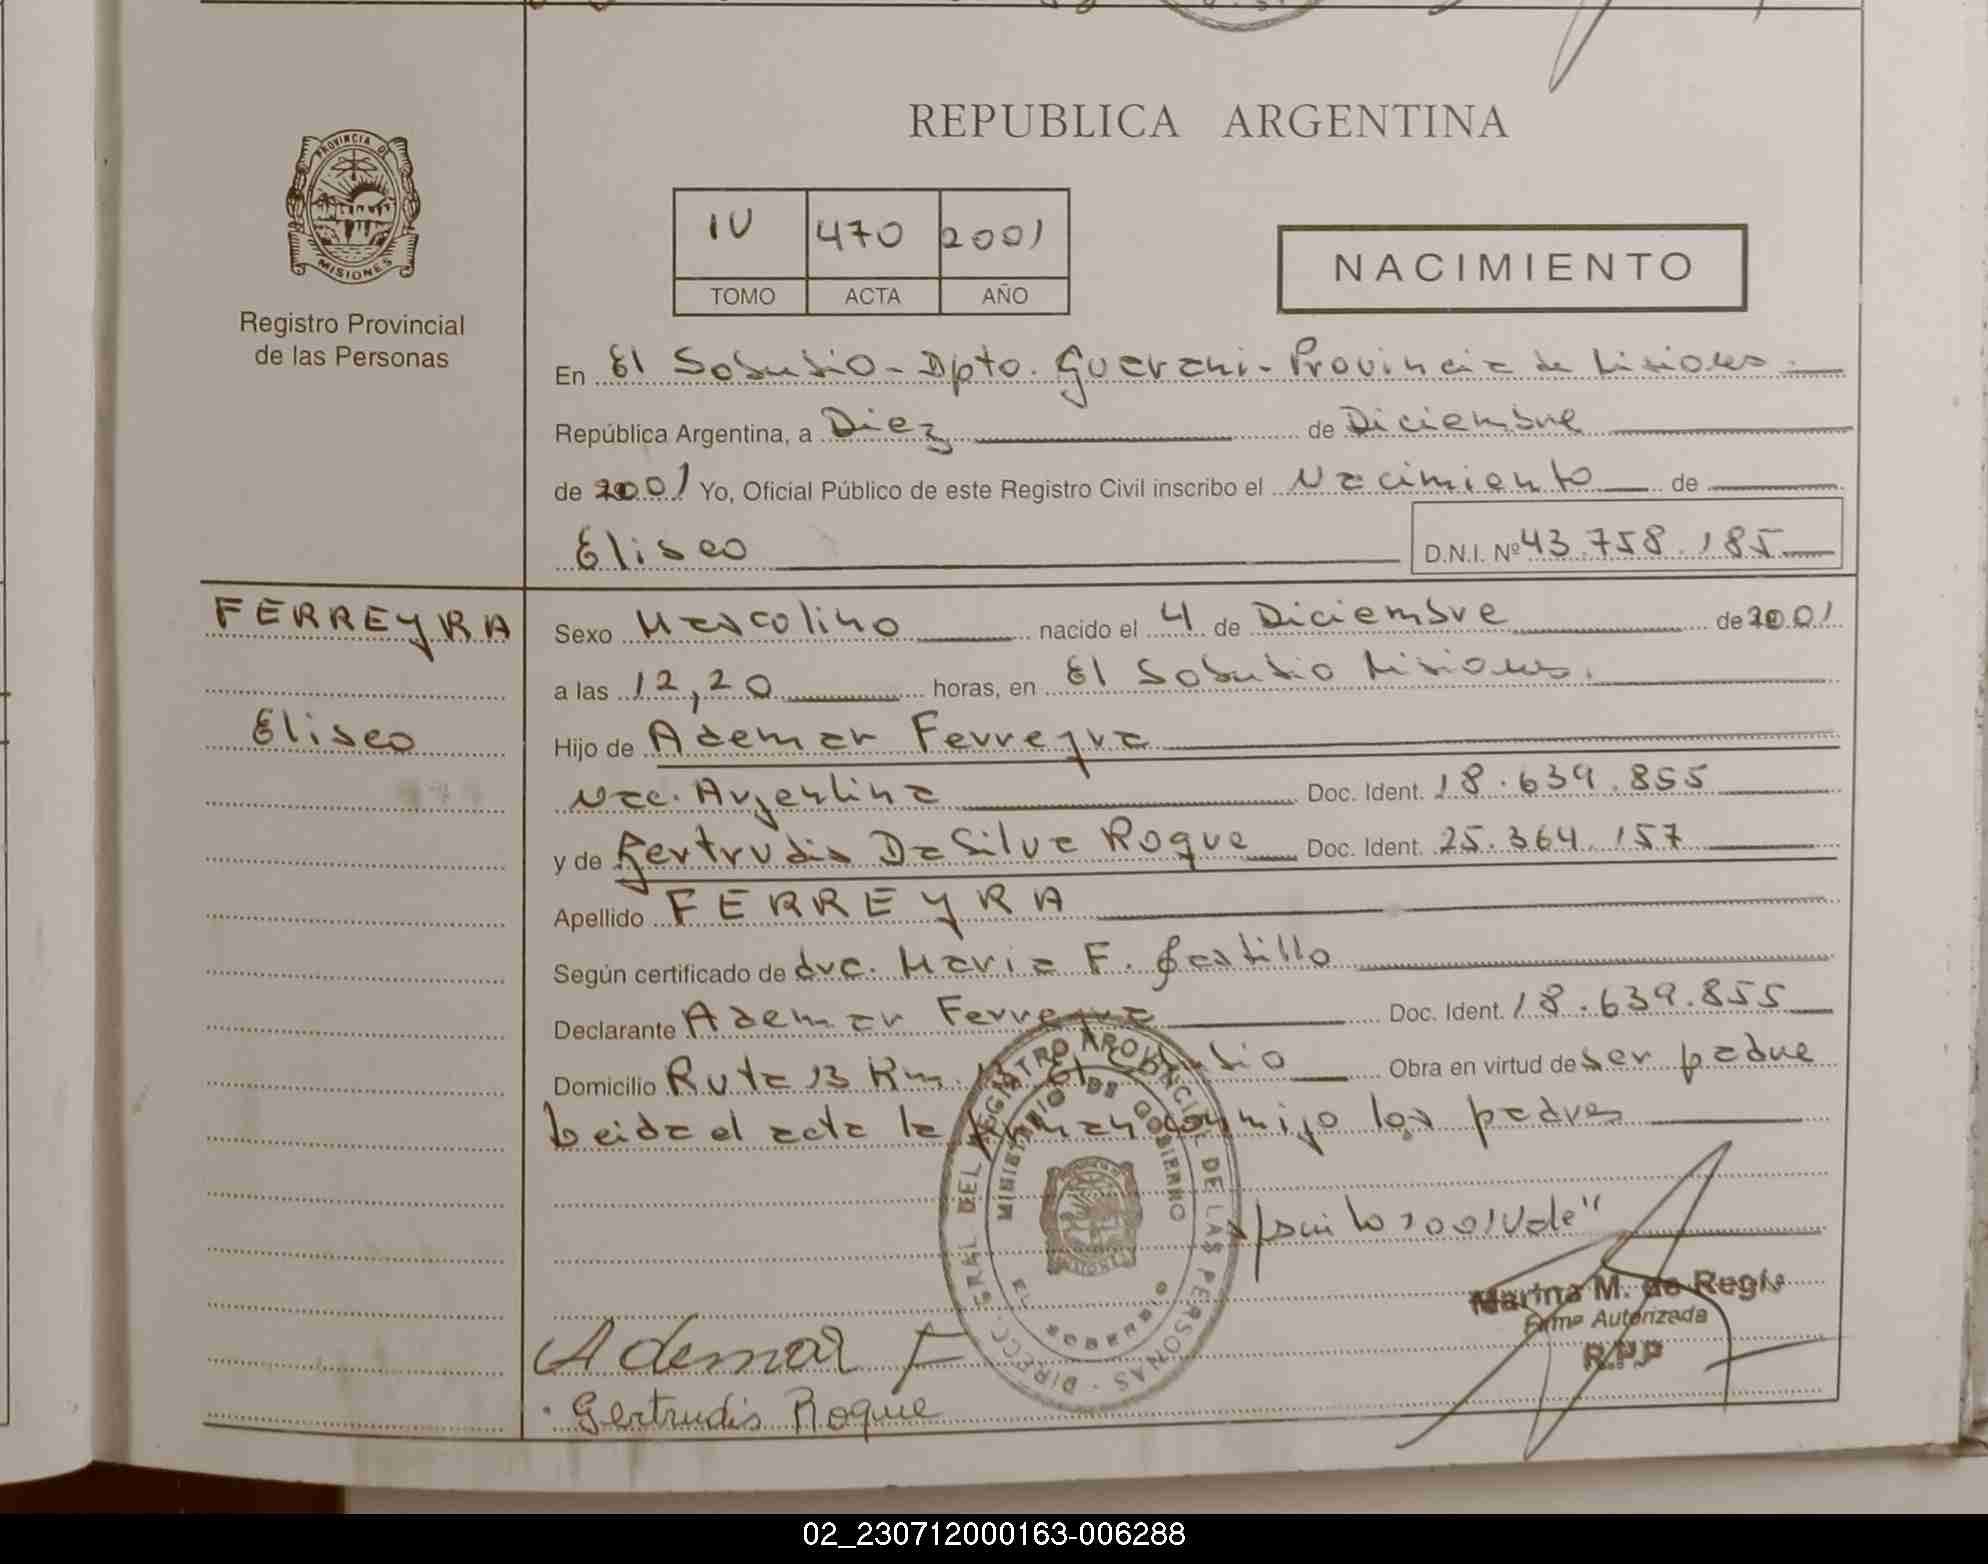 PROVINCIA DE
MISIONES
Registro Provincial
de las Personas
REPUBLICA ARGENTINA
IV 470 2001
TOMO ACTA AÑO
NACIMIENTO
En El Soberbio - Dpto. Guarani - Provincia de Misiones.
República Argentina, a Diez de Diciembre
de 2001 Yo, Oficial Público de este Registro Civil inscribo el Nacimiento de
Eliseo D.N.I. Nº 43.758.185
FERREYRA
Eliseo
Sexo Masculino nacido el 4 de Diciembre de 2001
a las 12,20 horas, en El Soberbio Misiones.
Hijo de Ademar Ferreyra
Nac. Argentina Doc. Ident. 18.639.855
y de Gertrudis Da Silva Roque Doc. Ident. 25.364.157
Apellido FERREYRA
Según certificado de dra. Maria F. Castillo
Declarante Ademar Ferreyra Doc. Ident. 18.639.855
Domicilio Ruta 13 Km. El Obra en virtud de ser padre
Leida el acta la firman conmigo los padres
2001 Vale"
DIRECC. GRAL. DEL REGISTRO PROVINCIAL DE LAS PERSONAS
MINISTERIO DE GOBIERNO
EL SOBERBIO
MISIONES
Marina M. de Regis
Firma Autorizada
R.P.P
Ademar F
Gertrudis Roque
02_230712000163-006288